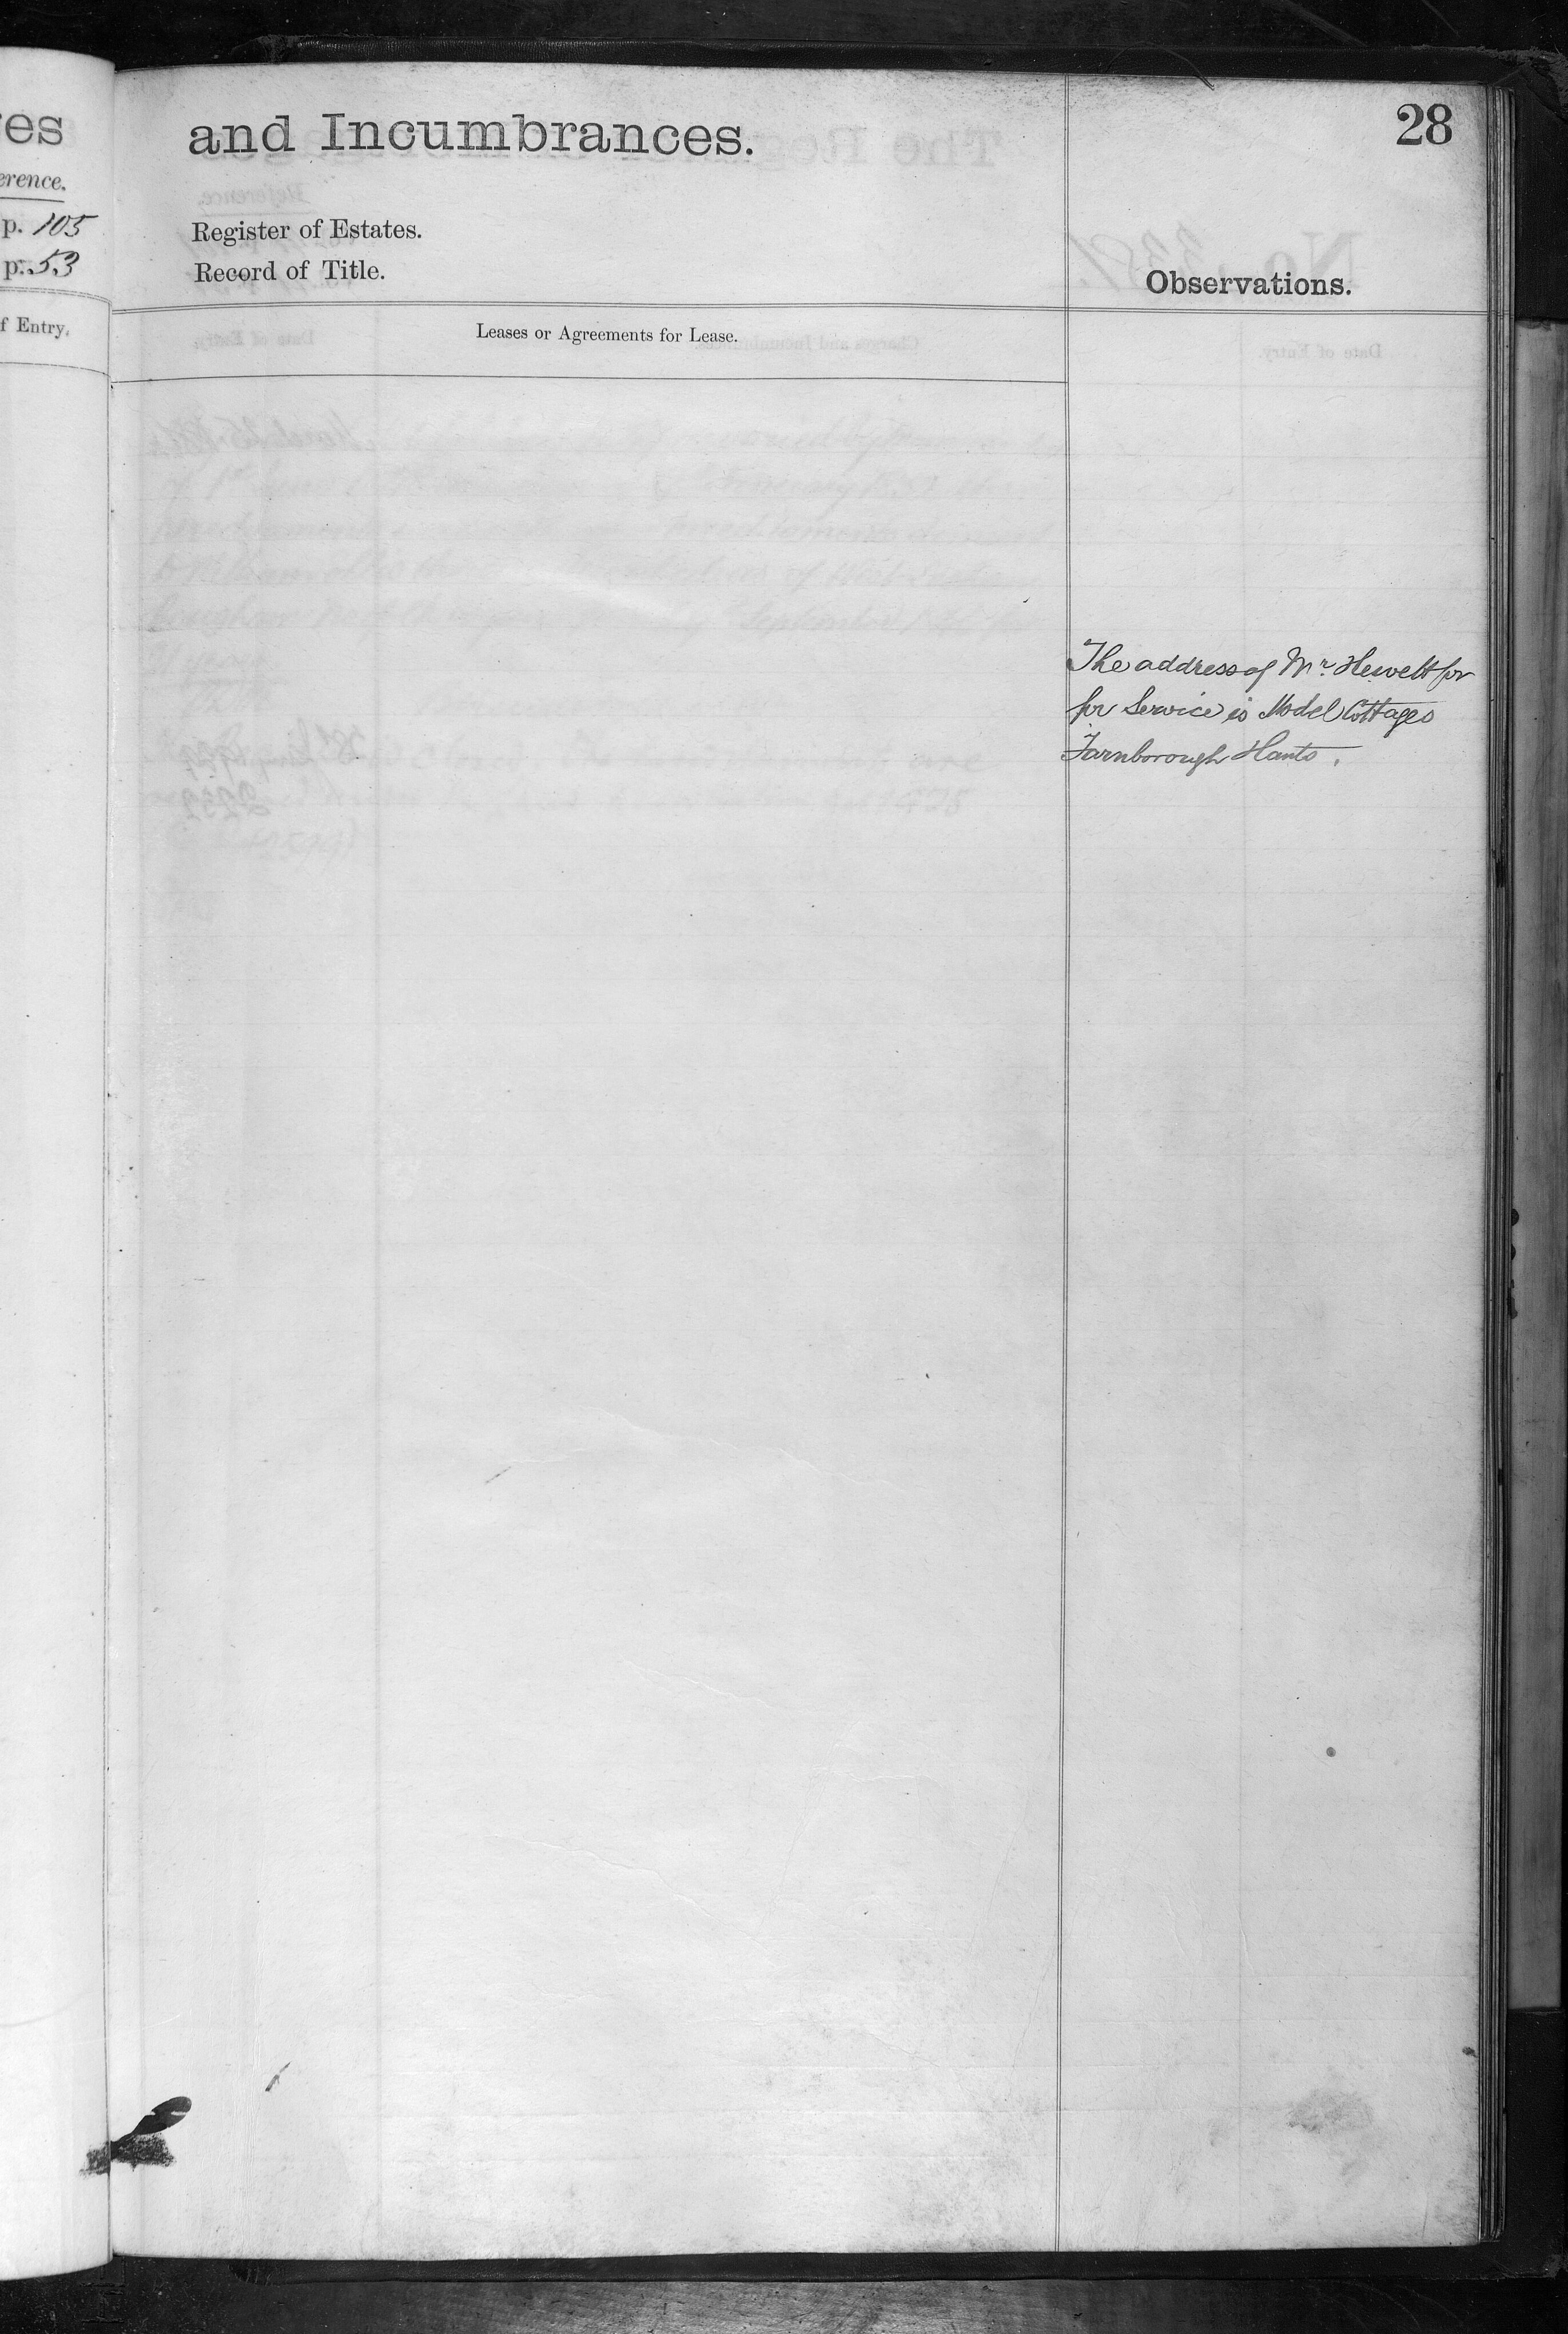 es
erence.
p. 105
p. 53
f Entry.
and Incumbrances.
28
Register of Estates.
Record of Title.
Observations.
Leases or Agreements for Lease.
The address of Mr. Hewett for
for Service is Model Cottages
Farnborough Hants.